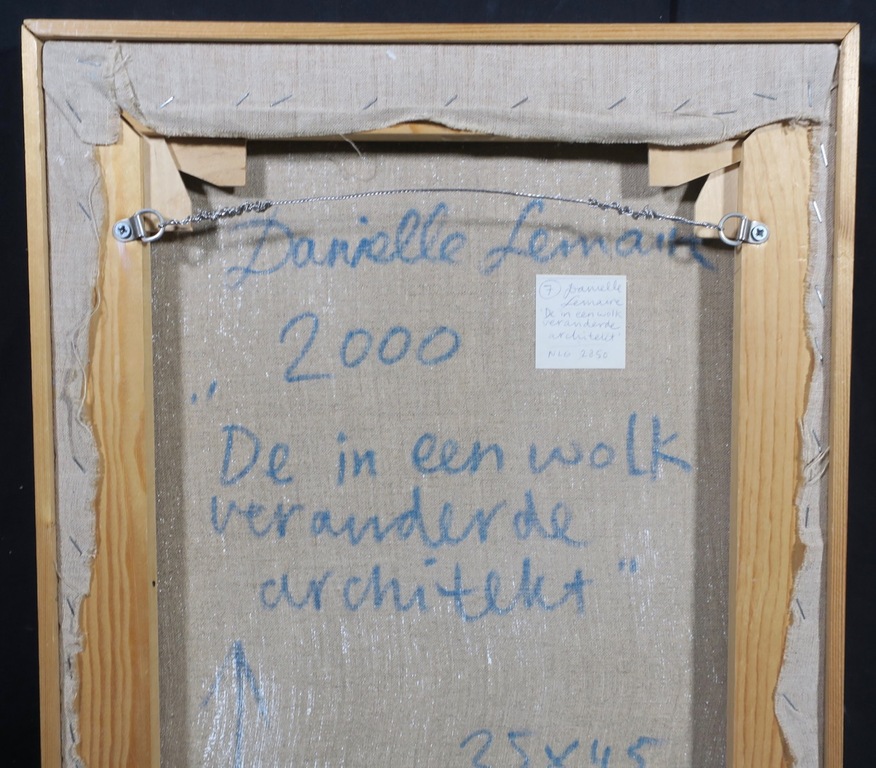 Danielle Lemaire
2000
" De in een wolk
veranderde
architekt "
7 Danielle
Lemaire
De in een wolk
veranderde
architekt
35x45